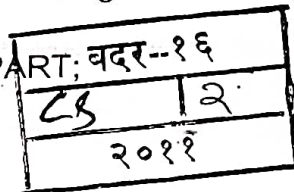 PART; बदर--१६
२
२०११